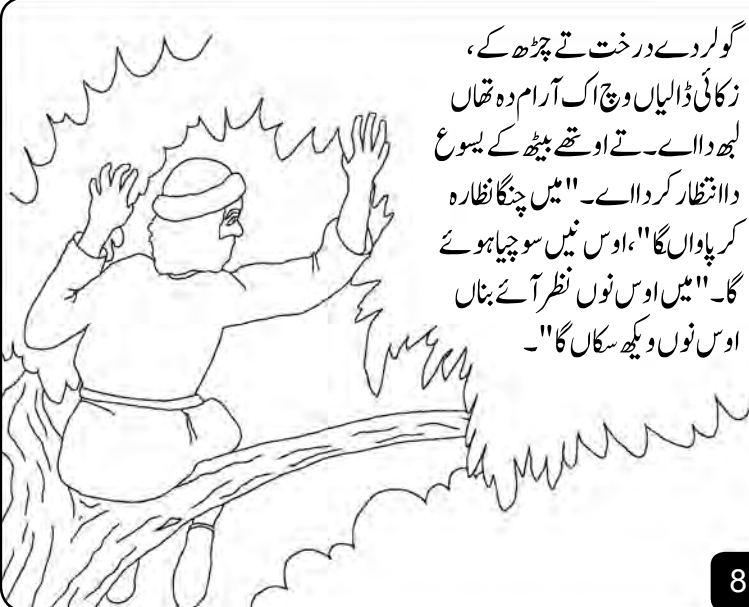 گولر دے درخت تے چڑھ کے،
زکائی ڈالیاں وچ اک آرام دہ تھاں
لبھ دا اے۔ تے اوتھے بیٹھ کے یسوع
دا انتظار کردا اے۔ "میں چنگا نظارہ
کر پاواں گا"، اوس نیں سوچیا ہوئے
گا۔ "میں اوس نوں نظر آئے بناں
اوس نوں ویکھ سکاں گا"۔
8